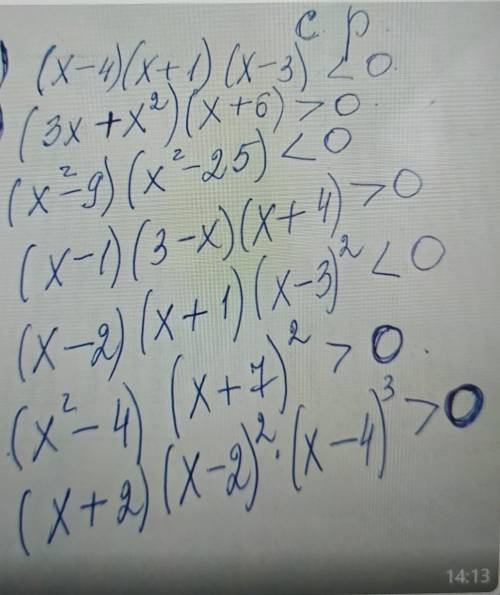 с. р.
) (x-4)(x+1)(x-3) < 0.
) (3x+x²)(x+6) > 0.
(x²-9)(x²-25) < 0
(x-1)(3-x)(x+4) > 0
(x-2)(x+1)(x-3)² < 0
(x²-4)(x+7)² > 0.
(x+2)(x-2)²·(x-4)³ > 0
14:13